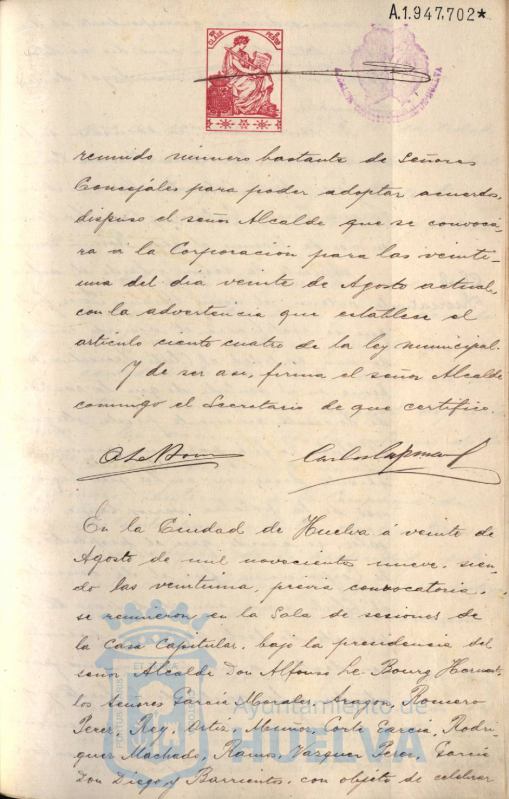 A.1.947,702*
reunido número bastante de Señores
Concejáles para poder adoptar acuerdo,
dispuso el señor Alcalde que se convocá-
ra á la Corporación para las veinti-
una del dia veinte de Agosto actual
con la advertencia que establece el
artículo ciento cuatro de la ley municipal.
Y de ser asi, firma el señor Alcalde
conmigo el Secretario de que certifico.
En la Ciudad de Huelva á veinte de
Agosto de mil novecientos nueve, sien-
do las veintiuna, prévia convocatoria,
se reunieron en la Sala de sesiones de
la Casa Capitular, bajo la presidencia del
señor Alcalde Don Alfonso Le Bourg
los Señores García Morales, Romero
Perez, Rey, Ortiz, Muñoz, Corte Garcia, Rodri-
guez Machado, Ramos, Vazquez Perez, García
Don Diego y Barrientos, con objeto de celebrar
Ayuntamiento de
HUELVA